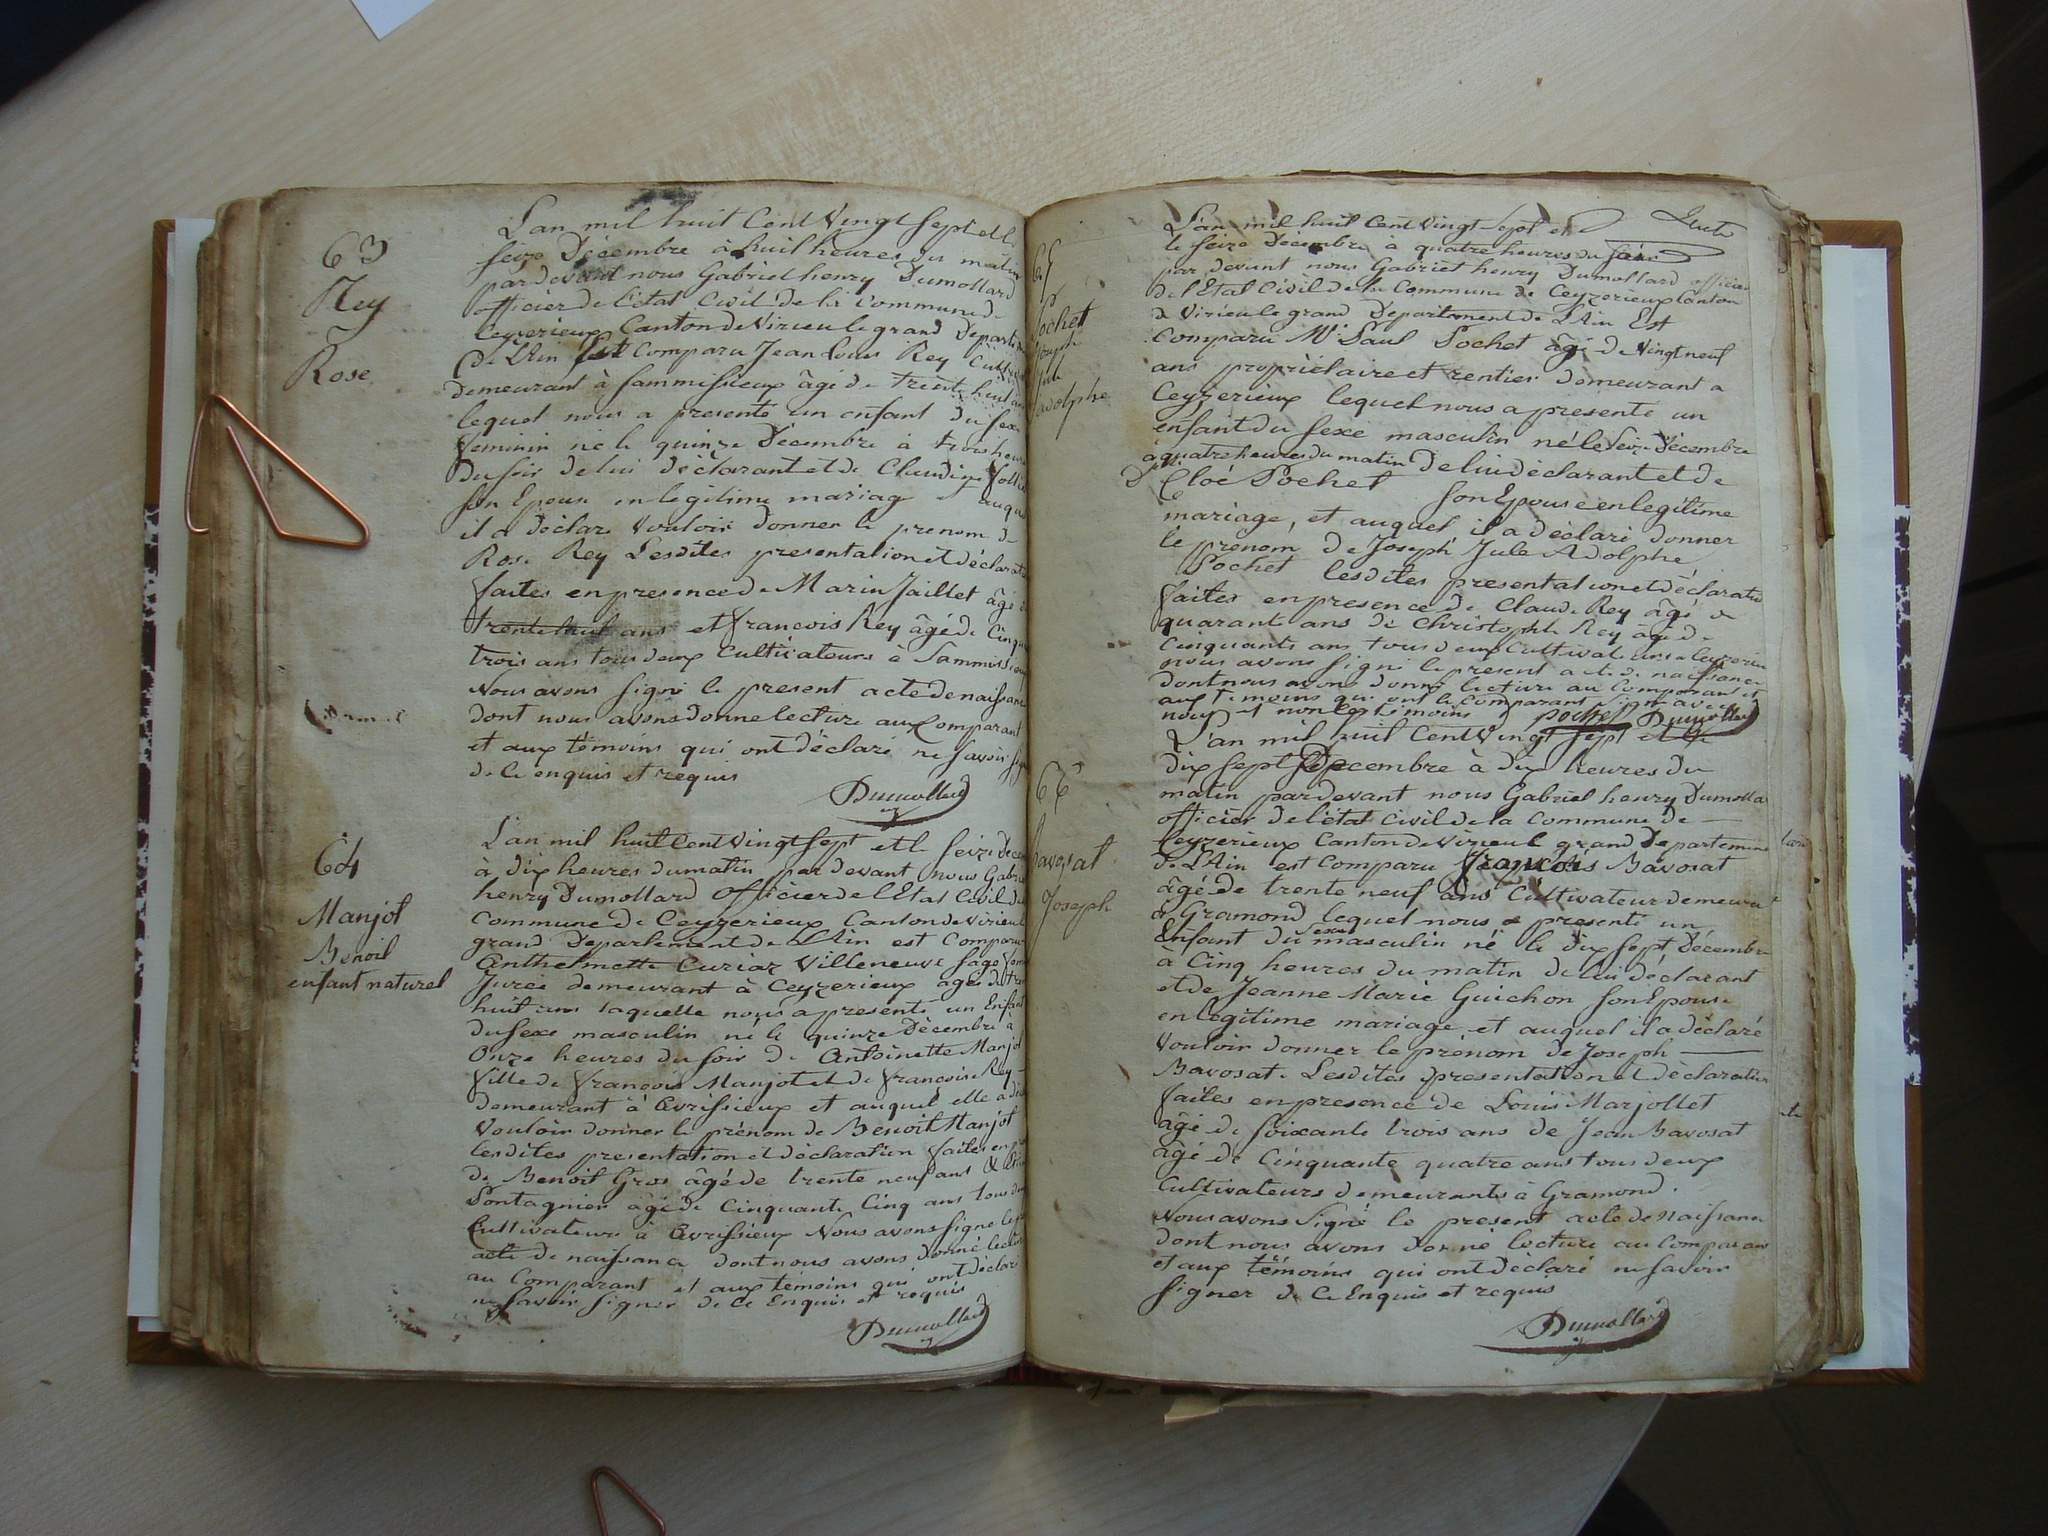 63
Rey
Rose
L'an mil huit Cent Vingt Sept et le
seize Décembre à huit heures du matin
par devant nous Gabriel henry Dumollard
officier de l'état Civil de la Commune de
Ceyzerieux Canton de Virieu le grand Departem
De L'Ain Est Comparu Jean Louis Rey Cultiv
demeurant à Sammissieux âgé de trente huit ans
lequel nous a presenté un enfant du sexe
feminin né le quinze Décembre à trois heures
du soir de lui déclarant et de Claudine
son Epouse en legitime mariage auquel
il a déclaré Vouloir donner le prenom de
Rose Rey Lesdites presentation et déclarati
faites en presence de Marin Jaillet âgé de
trente huit ans et francois Rey âgé de Cinqu
trois ans tous deux Cultivateurs à Sammissieux
Nous avons signé le present acte de naissan
dont nous avons donné lecture aux Comparant
et aux témoins qui ont déclaré ne savoir sig
de ce enquis et requis
Dumollard
64
Manjot
Benoit
enfant naturel
L'an mil huit Cent Vingt Sept et le seize Décem
à dix heures du matin par devant nous Gabri
henry Dumollard Officier de l'Etat Civil de
Commune de Ceyzerieux Canton de Virieu le
grand Departement de L'Ain est Comparu
Anthelmette Curiaz Villeneuve sage fem
Jurée demeurant à Ceyzerieux âgée de tren
huit ans laquelle nous a presenté un Enfant
du sexe masculin né le quinze Décembre à
Onze heures du soir de Antoinette Manjot
fille de francois Manjot et de francoise Rey
demeurant à Avrissieux et auquel elle a décl
Vouloir donner le prénom de Benoit Manjot
lesdites presentation et déclaration faites en p
de Benoit Gros âgé de trente neuf ans &
Pontagnier âgé de Cinquante Cinq ans tous deux
Cultivateurs à Avrissieux Nous avons signé le p
acte de naissance dont nous avons donné lectu
au Comparant et aux témoins qui ont déclaré
ne savoir signer de ce Enquis et requis
Dumollard
65
Pochet
Joseph
Jule
Adolphe
L'an mil huit Cent Vingt Sept et
le seize Décembre à quatre heures du soir
par devant nous Gabriel henry Dumollard officier
de l'Etat Civil de la Commune de Ceyzerieux Canton
de Virieu le grand Departement de L'Ain Est
Comparu Mr Paul Pochet âgé de Vingt neuf
ans propriétaire et rentier demeurant a
Ceyzerieux lequel nous a presenté un
enfant du sexe masculin né le seize Décembre
à quatre heures du matin de lui déclarant et de
Cloé Pochet son Epouse en legitime
mariage, et auquel il a déclaré donner
le prenom de Joseph Jule Adolphe
Pochet lesdites presentation et déclaratio
faites en presence de Claude Rey âgé de
quarant ans de Christophle Rey âgé de
Cinquante ans tous deux Cultivateurs a Ceyzerieu
nous avons signé le présent acte de naissance
dont nous avons donné lecture au Comparant et
aux témoins qui ont le Comparant signé avec
nous et non les témoins pochet Dumollard
66
Bavosat
Joseph
L'an mil huit Cent Vingt Sept et le
dix sept Decembre à dix heures du
matin par devant nous Gabriel henry Dumolla
officier de l'état Civil de la Commune de
Ceyzerieux Canton de Virieu le grand Departement
de L'Ain est Comparu francois Bavosat
âgé de trente neuf ans Cultivateur demeura
à Gramond lequel nous a presenté un
Enfant du sexe masculin né le dix sept Décembre
à Cinq heures du matin de lui déclarant
et de Jeanne Marie Guichon son Epouse
en legitime mariage et auquel il a déclaré
Vouloir donner le prénom de Joseph
Bavosat. Lesdites presentation et déclaration
faites en presence de Louis Marjollet
âgé de soixante trois ans de Jean Bavosat
âgé de Cinquante quatre ans tous deux
Cultivateurs demeurants à Gramond.
Nous avons signé le present acte de Naissance
dont nous avons donné lecture au Comparant
et aux témoins qui ont déclaré ne savoir
signer de Ce Enquis et requis
Dumollard